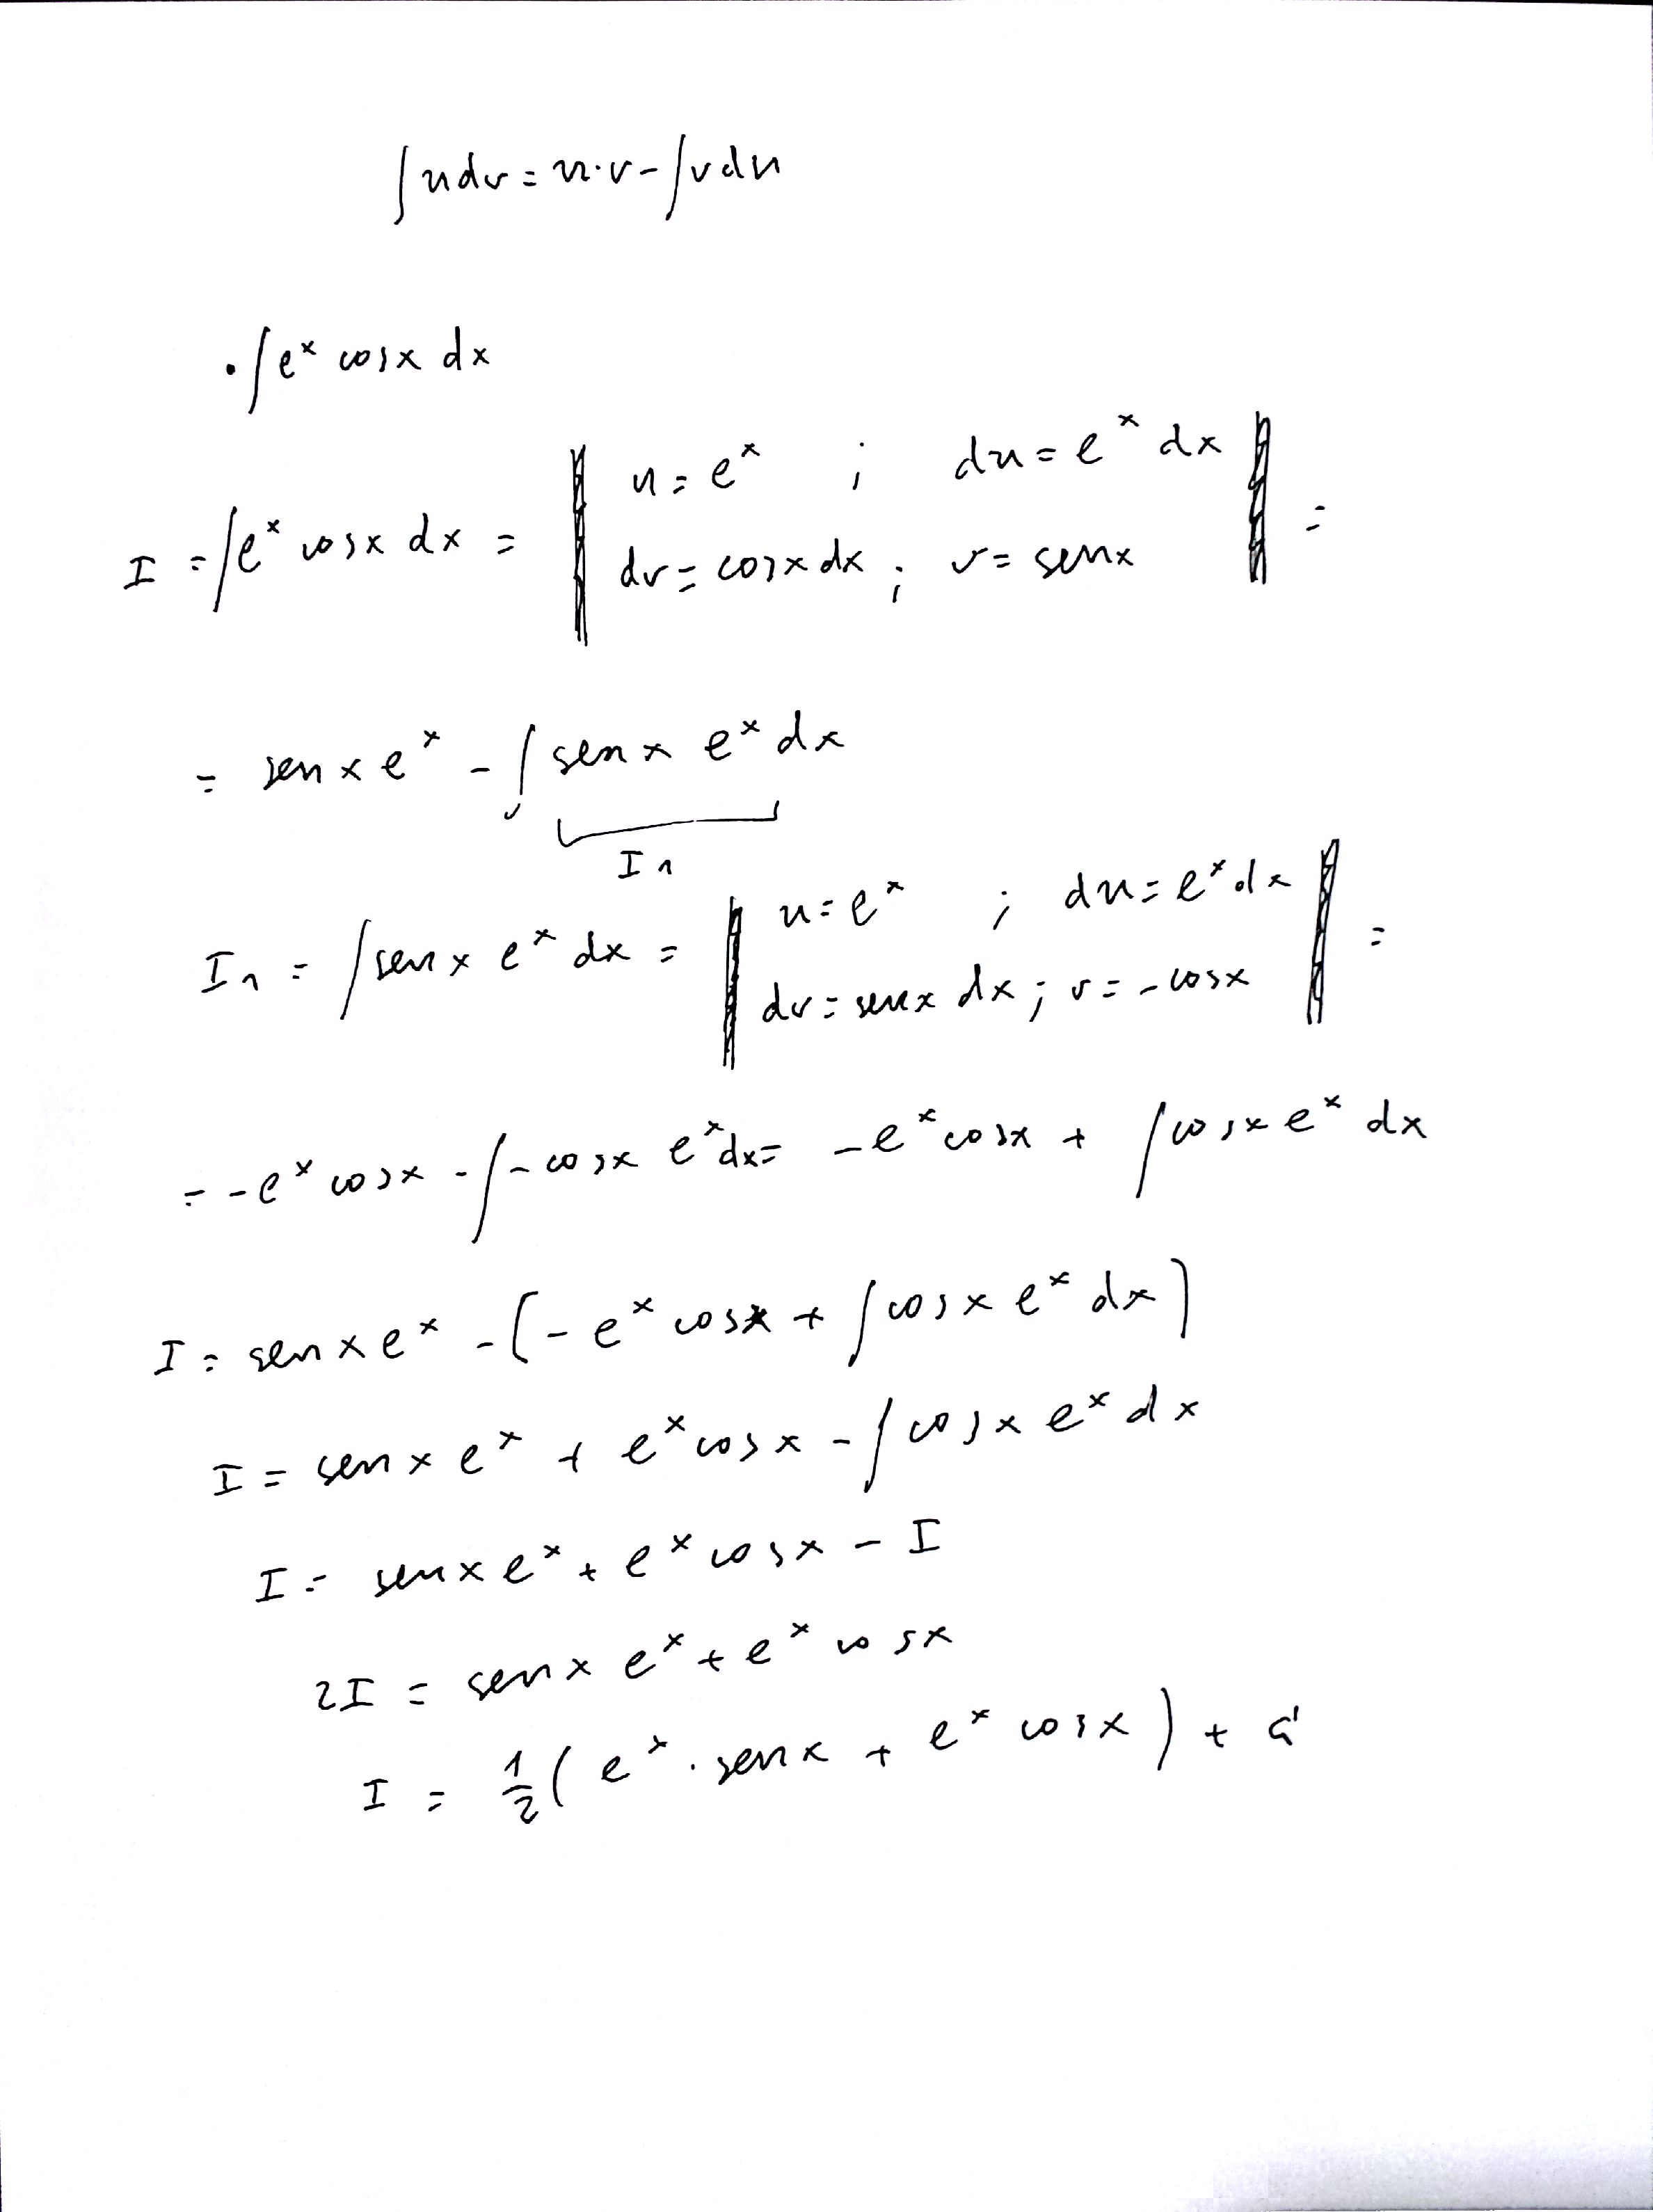 ∫udv = u·v - ∫vdu
· ∫e^x cosx dx
I = ∫e^x cosx dx = | u = e^x ; du = e^x dx | =
| dv = cosx dx ; v = senx |
= senx e^x - ∫senx e^x dx
I1
I1 = ∫senx e^x dx = | u = e^x ; du = e^x dx | =
| dv = senx dx ; v = -cosx |
= -e^x cosx - ∫-cosx e^x dx = -e^x cosx + ∫cosx e^x dx
I = senx e^x - (-e^x cosx + ∫cosx e^x dx)
I = senx e^x + e^x cosx - ∫cosx e^x dx
I = senx e^x + e^x cosx - I
2I = senx e^x + e^x cosx
I = 1/2 (e^x · senx + e^x cosx) +